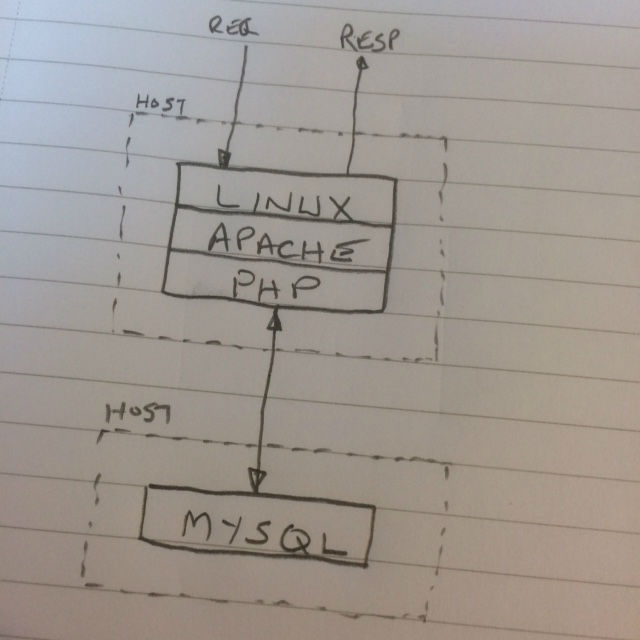 REQ RESP
HOST
LINUX
APACHE
PHP
HOST
MYSQL